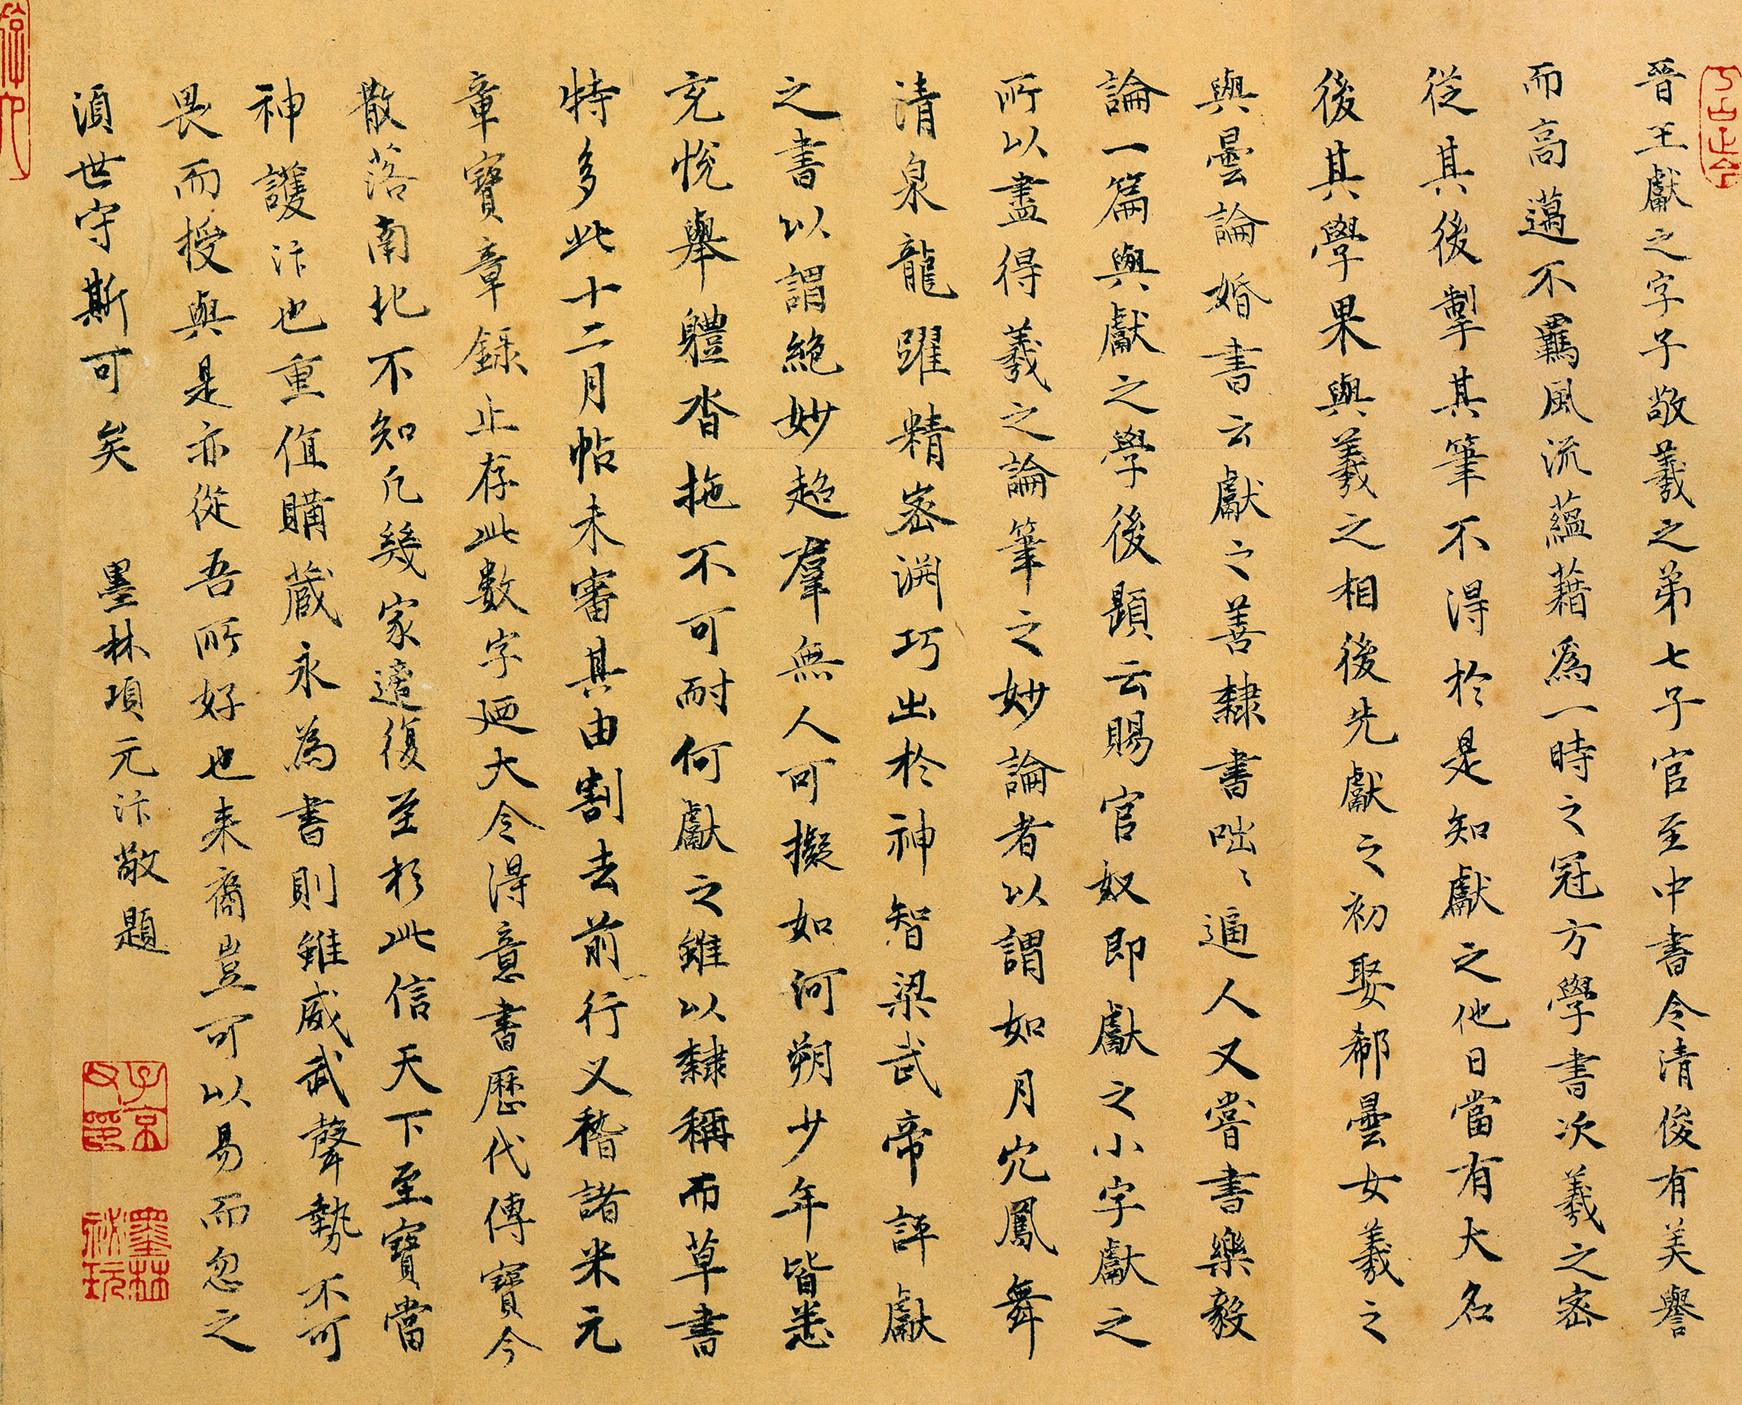 晉王獻之字子敬羲之弟七子官至中書令清俊有美譽
而高邁不羈風流蘊藉為一時之冠方學書次羲之密
從其後掣其筆不得於是知獻之他日當有大名
後其學果與羲之相後先獻之初娶郗曇女羲之
與曇論婚書云獻之善隸書咄〻逼人又嘗書樂毅
論一篇與獻之學後題云賜官奴即獻之小字獻之
所以盡得羲之論筆之妙論者以謂如月穴鳳舞
清泉龍躍精密淵巧出於神智梁武帝評獻
之書以謂絕妙超羣無人可擬如河朔少年皆悉
充悅舉體沓拖不可耐何獻之雖以隸稱而草書
特多此十二月帖未審其由割去前行又稽諸米元
章寶章錄止存此數字廼大令得意書歷代傳寶今
散落南北不知凡幾家遶復至於此信天下至寶當
神護汴也重值購蔵永為書則雖威武聲勢不可
畏而授與是亦從吾所好也来裔豈可以易而忽之
湏世守斯可矣 墨林項元汴敬題
子京父印
墨林秘玩